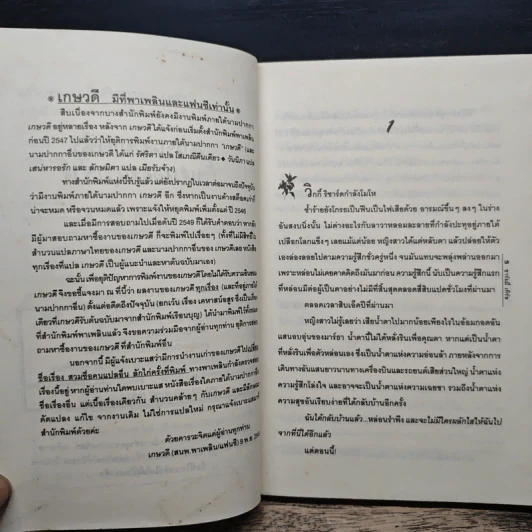 เกษวดี มีที่พาเพลินและแฟนซีเท่านั้น
สืบเนื่องจากบางสำนักพิมพ์ยังคงมีงานพิมพ์ภายใต้นามปากกา
เกษวดี อยู่หลายเรื่อง หลังจาก เกษวดีได้แจ้งก่อนเริ่มตั้งสำนักพิมพ์พาเพลิน
ก่อนปี 2547 ไปแล้วว่าให้ยุติการพิมพ์งานภายใต้นามปากกา "เกษวดี" และ
นามปากกาอื่นของเกษวดี ได้แก่ รัศริตา แปล โสเภณีคืนเดียว วันนิภา แปล
เสน่หารอรัก และ ลักษมิตา แปล เมียรับจ้าง)
ทางสำนักพิมพ์แห่งนี้รับรู้แล้ว แต่ยังปรากฏในเวลาต่อมาจนถึงปัจจุบัน
ว่ามีงานพิมพ์ภายใต้นามปากกา เกษวดี อีก ซึ่งหากเป็นงานค้างสต็อคเก่าก็
น่าจะหมด หรือจวนหมดแล้ว เพราะแจ้งให้หยุดพิมพ์เพิ่มตั้งแต่ ปี 2546
และเมื่อมีการสอบถามไปเมื่อต้นปี 2549 ก็ได้รับคำตอบว่า หากยัง
มีผู้มาสอบถามหาซื้องานของเกษวดี ก็จะพิมพ์ไปเรื่อยๆ (ทั้งที่ไม่มีลิขสิทธิ์
สำนวนแปลภาษาไทยของเกษวดี และนามปากกาอื่นของเกษวดีเลย หนังสือ
ทุกเรื่องที่แปล เกษวดี เป็นผู้แนะนำและหาต้นฉบับมาเอง)
ฉะนั้น เพื่อยุติปัญหาการพิมพ์งานของเกษวดีโดยไม่ได้รับความยินยอม
เกษวดี จึงขอชี้แจงมา ณ ที่นี้ว่า ผลงานของเกษวดี ทุกเรื่อง (และที่อยู่ภายใต้
นามปากกาอื่น) ตั้งแต่อดีตถึงปัจจุบัน (ยกเว้น เรื่อง เคหาสน์อสูร ซึ่งเป็นเรื่อง
เดียวที่เกษวดีรับต้นฉบับมาจากสำนักพิมพ์เรือนบุญ) ได้นำมาพิมพ์ใหม่ทั้งหมด
ที่สำนักพิมพ์พาเพลินแล้ว จึงขอความร่วมมือจากผู้อ่านทุกท่าน ยุติการสอบ
ถามหาซื้องานของเกษวดี ที่สำนักพิมพ์อื่น
นอกจากนี้ มีผู้แจ้งเบาะแสว่ามีการนำงานเก่าของเกษวดี ไปเปลี่ยน
ชื่อเรื่อง สวมชื่อคนแปลอื่น ลักไก่ครั้งที่พิมพ์ ทางพาเพลินกำลังตรวจสอบ
อยู่ หากผู้อ่านท่านใดพบเบาะแส หนังสือเรื่องใดภายใต้นามปากกาอื่น
ชื่อเรื่องอื่น แต่เนื้อเรื่องเดียวกัน สำนวนคล้ายๆ กับเกษวดี และมีลักษณะ
ดัดแปลง แก้ไข จากงานเดิม ไม่ใช่การแปลใหม่ กรุณาแจ้งเบาะแสมาที่
สำนักพิมพ์ด้วยค่ะ
ด้วยคารวะจิตแด่ผู้อ่านทุกท่าน
เกษวดี (สนพ.พาเพลิน/แฟนซี) 9 พ.ย.
1
วิกกี้ ริชาร์ดกำลังโมโห
ซ้ำร้ายยังโกรธเป็นฟืนเป็นไฟเสียด้วย อารมณ์ขึ้นๆ ลงๆ ในร่าง
อันสงบนิ่งนั้น ไม่ต่างอะไรกับลาวาหลอมละลายที่กำลังปะทุอยู่ภายใต้
เปลือกโลกแข็งๆ เลยแม้แต่น้อย หญิงสาวได้แต่หลับตา แล้วปล่อยให้ตัว
เองล่องลอยไปตามความรู้สึกชั่วครู่หนึ่ง จนมันแทบจะพลุ่งพล่านออกมา
เพราะหล่อนไม่เคยคาดคิดถึงมันมาก่อน ความรู้สึกนี้ นับเป็นความรู้สึกแรก
ที่หล่อนมีต่อผู้เป็นตาอย่างไม่มีที่สิ้นสุดตลอดสี่สิบแปดชั่วโมงที่ผ่านมา
ตลอดเวลาสิบเอ็ดปีที่ผ่านมา
หญิงสาวไม่รู้เลยว่า เสียน้ำตาไปมากน้อยเพียงไรในอ้อมกอดอัน
แสนอบอุ่นของมาร์ธา น้ำตานี้ไม่ได้หลั่งรินเพื่อคุณตา หากแต่เป็นน้ำตา
ที่หลั่งรินเพื่อตัวหล่อนเอง ซึ่งเป็นน้ำตาแห่งความอ่อนล้า ภายหลังจากการ
เดินทางอันแสนยาวนานทางเครื่องบินและรถยนต์เสียส่วนใหญ่ น้ำตาแห่ง
ความรู้สึกโล่งใจ และอาจจะเป็นน้ำตาแห่งความเฉยชา รวมถึงน้ำตาแห่ง
ความสุขอันเรียบง่ายที่ได้กลับบ้านอีกครั้ง
ฉันได้กลับบ้านแล้ว...หล่อนรำพึง และจะไม่มีใครผลักไสให้ฉันไป
จากที่นี่ได้อีกแล้ว
แต่ตอนนี้!